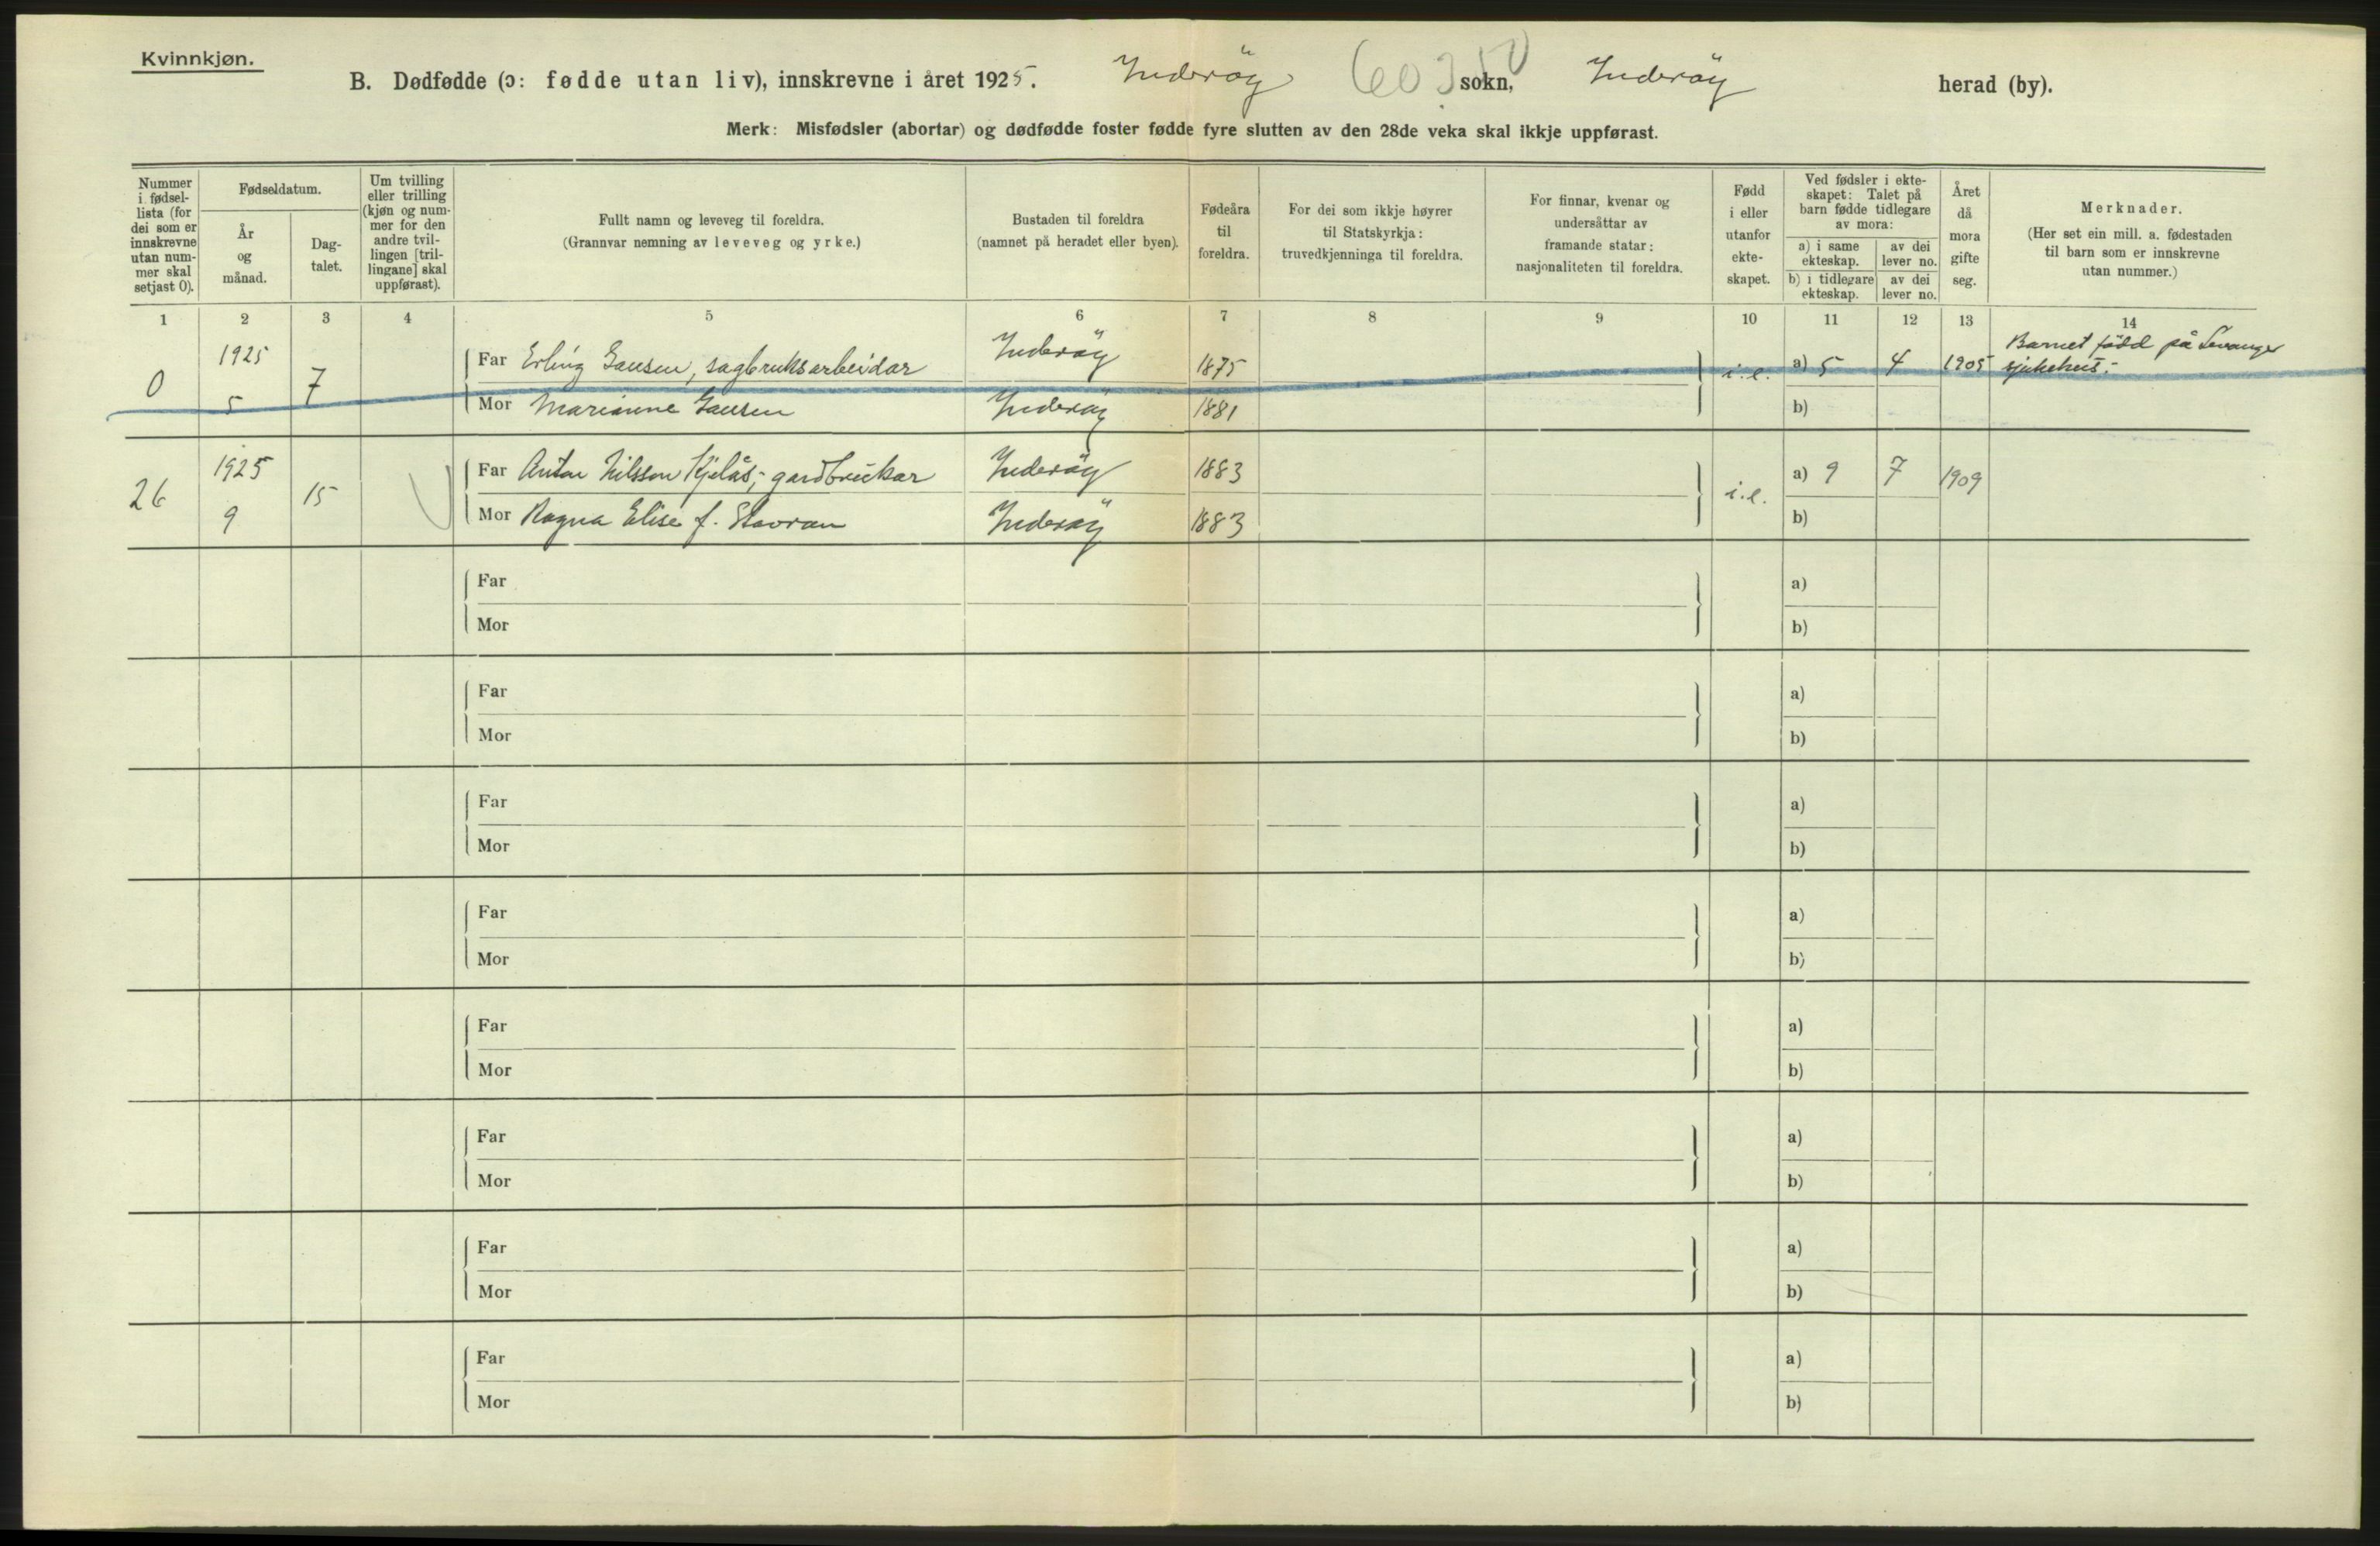 Kvinnkjøn.
B. Dødfødde (ɔ: fødde utan liv), innskrevne i året 1925. Inderöy 603 sokn, Inderöy herad (by).
Merk: Misfødsler (abortar) og dødfødde foster fødde fyre slutten av den 28de veka skal ikkje uppførast.
Nummer
i fødsel-
lista (for
dei som er
innskrevne
utan num-
mer skal
setjast 0).
Fødseldatum.
År
og
månad.
Dag-
talet.
Um tvilling
eller trilling
(kjøn og num-
mer for den
andre tvil-
lingen [tril-
lingane] skal
uppførast).
Fullt namn og leveveg til foreldra.
(Grannvar nemning av leveveg og yrke.)
Bustaden til foreldra
(namnet på heradet eller byen).
Fødeåra
til
foreldra.
For dei som ikkje høyrer
til Statskyrkja:
truvedkjenninga til foreldra.
For finnar, kvenar og
undersåttar av
framande statar:
nasjonaliteten til foreldra.
Fødd
i eller
utanfor
ekte-
skapet.
Ved fødsler i ekte-
skapet: Talet på
barn fødde tidlegare
av mora:
a) i same
ekteskap.
av dei
lever no.
b) i tidlegare
ekteskap.
av dei
lever no.
Året
då
mora
gifte
seg.
Merknader.
(Her set ein mill. a. fødestaden
til barn som er innskrevne
utan nummer.)
1 2 3 4 5 6 7 8 9 10 11 12 13 14
0 1925 5 7
Far Erling Jansen, sagbruksarbeidar Inderöy 1875 i.e. a) 5 4 1905 Barnet född på Levanger
sjukehus.
Mor Marianne Jansen Inderöy 1881 b)
26 1925 9 15
Far Anton Nilsson Kjelås, gardbrukar Inderöy 1883 i.e. a) 9 7 1909
Mor Ragna Elise f. Stavran Inderöy 1883 b)
Far a)
Mor b)
Far a)
Mor b)
Far a)
Mor b)
Far a)
Mor b)
Far a)
Mor b)
Far a)
Mor b)
Far a)
Mor b)
Far a)
Mor b)